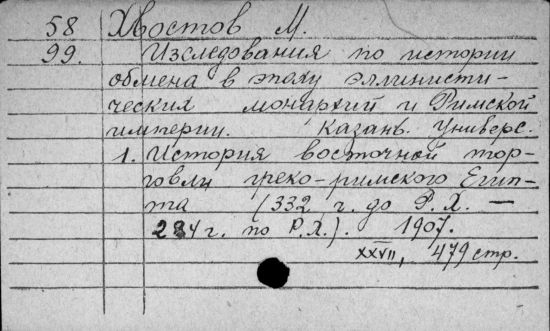 58 Хвостов М.
99. Изследования по истории
обмена в эпоху эллинисти-
ческих монархий и Римской
империи. Казань. Универс.
1. История восточной тор-
говли греко-римского Егип-
та (332 г. до Р. Х. —
284 г. по Р. Х.). 1907.
XXVII, 479 стр.